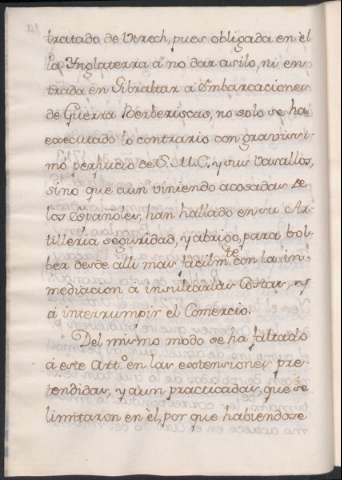 tratado de Utrech, pues obligada en èl
la Ynglaterra á no dar asilo, ni en-
trada en Gibraltar á Embarcaciones
de Guerra Berberiscas, no solo se ha
executado lo contrario con gravisi-
mo perjucio de S. M. C. y sus Vasallos,
sino que aun viniendo acosadas de
los Españoles, han hallado en su Ar-
tilleria seguridad, y abrigo, para bol-
ber desde alli mas facilmte con la in-
mediacion à insultar las Costas, y
á interrumpir el Comercio.
Del mismo modo se ha faltado
á este Arto en las extensiones pre-
tendidas, y aun practicadas, que se
limitaron en èl, por que habiendose